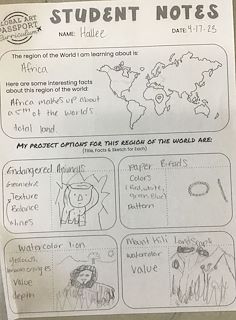 GLOBAL ART
PASSPORT
Curriculum
STUDENT NOTES
NAME: Hallee
DATE: 9-17-23
The region of the World I am learning about is:
Africa
Here are some interesting facts
about this region of the world:
Africa makes up about
a 5TH of the world's
total land.
MY PROJECT OPTIONS FOR THIS REGION OF THE WORLD ARE:
(Title, Facts & Sketch for Each)
Endangered Animals
Geometric
Texture
Balance
Lines
Paper Beads
Colors
(Red, white,
green, Blue)
Pattern
Watercolor lion
yellowish
brown
Value
depth
Mount Kili Landscape
watercolor
value